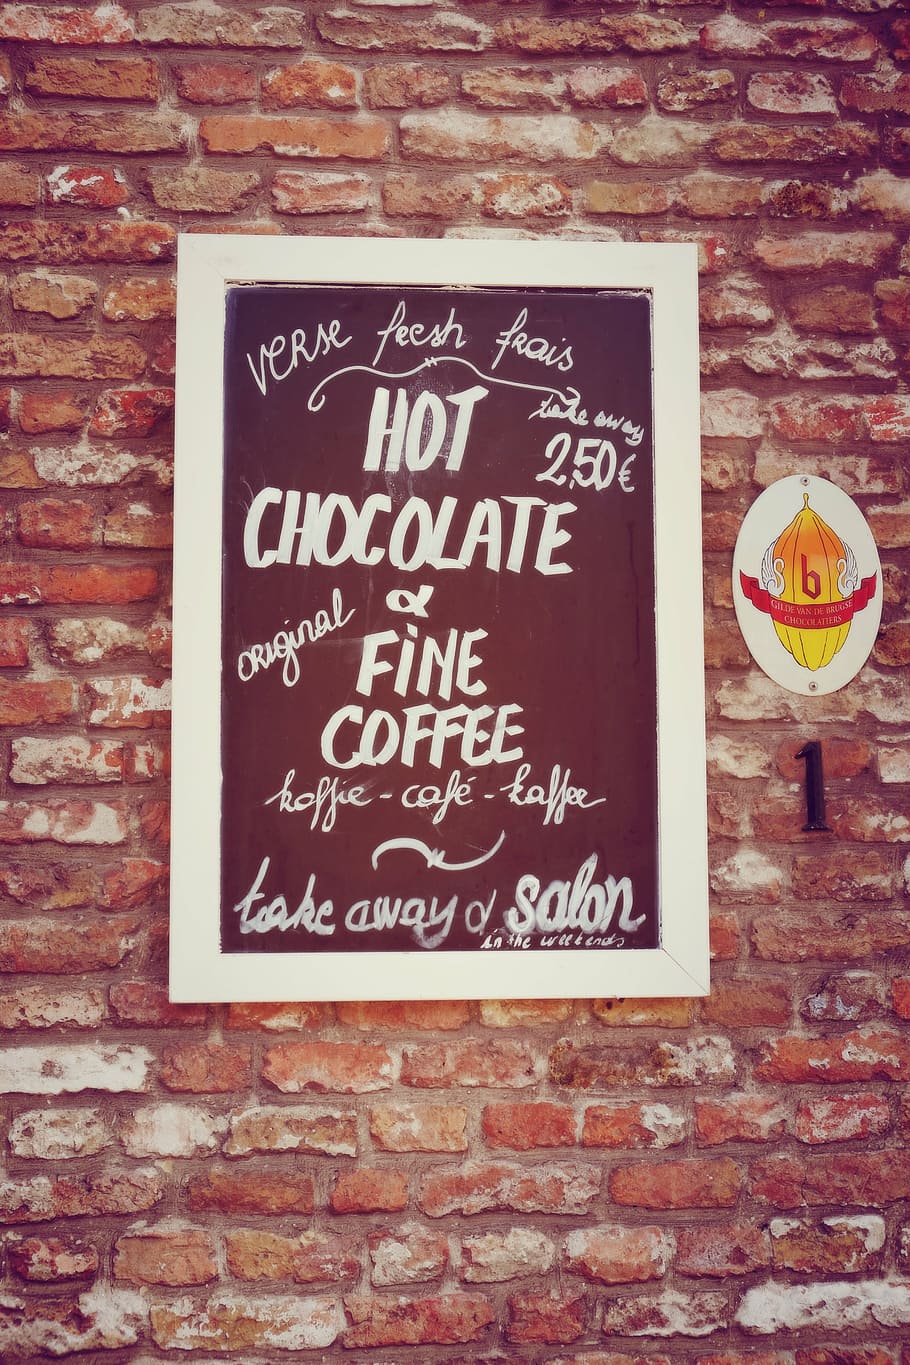 VERSE fresh frais
HOT
take away
2,50€
CHOCOLATE
&
original
FINE
COFFEE
koffie - café - kaffee
take away & salon
in the weekends
b
GILDE VAN DE BRUGSE
CHOCOLATIERS
1